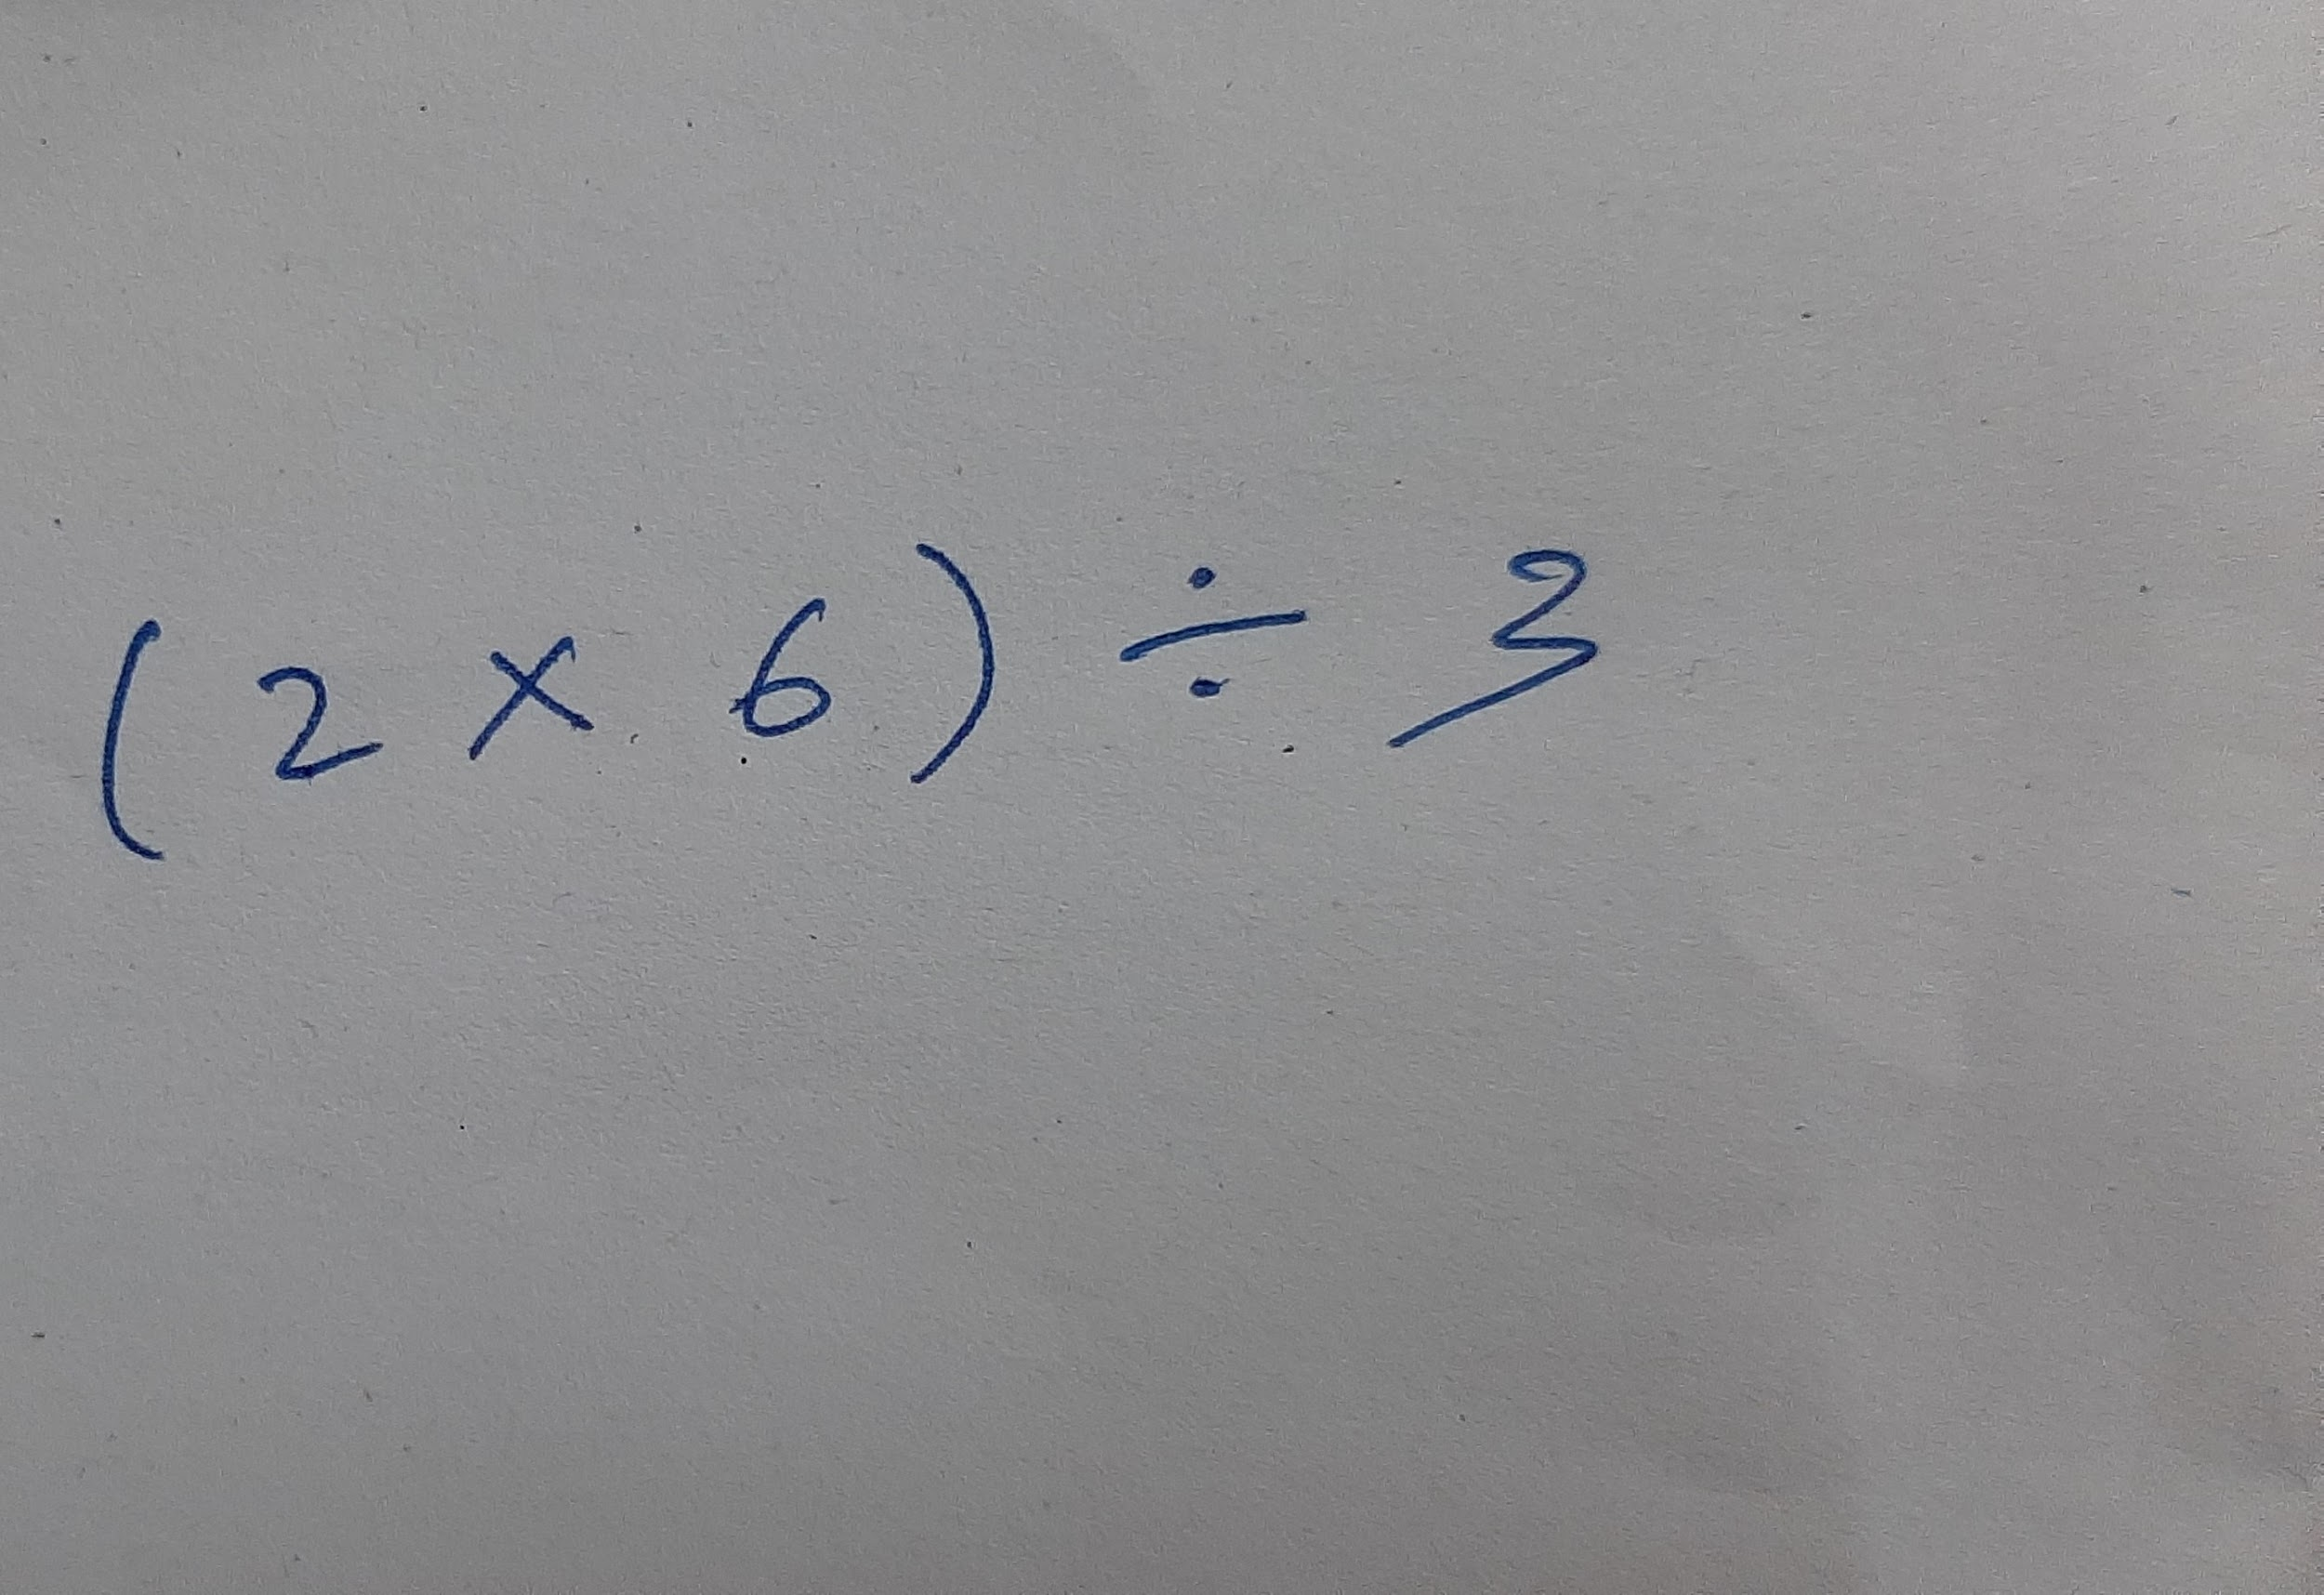 (2 × 6) ÷ 3